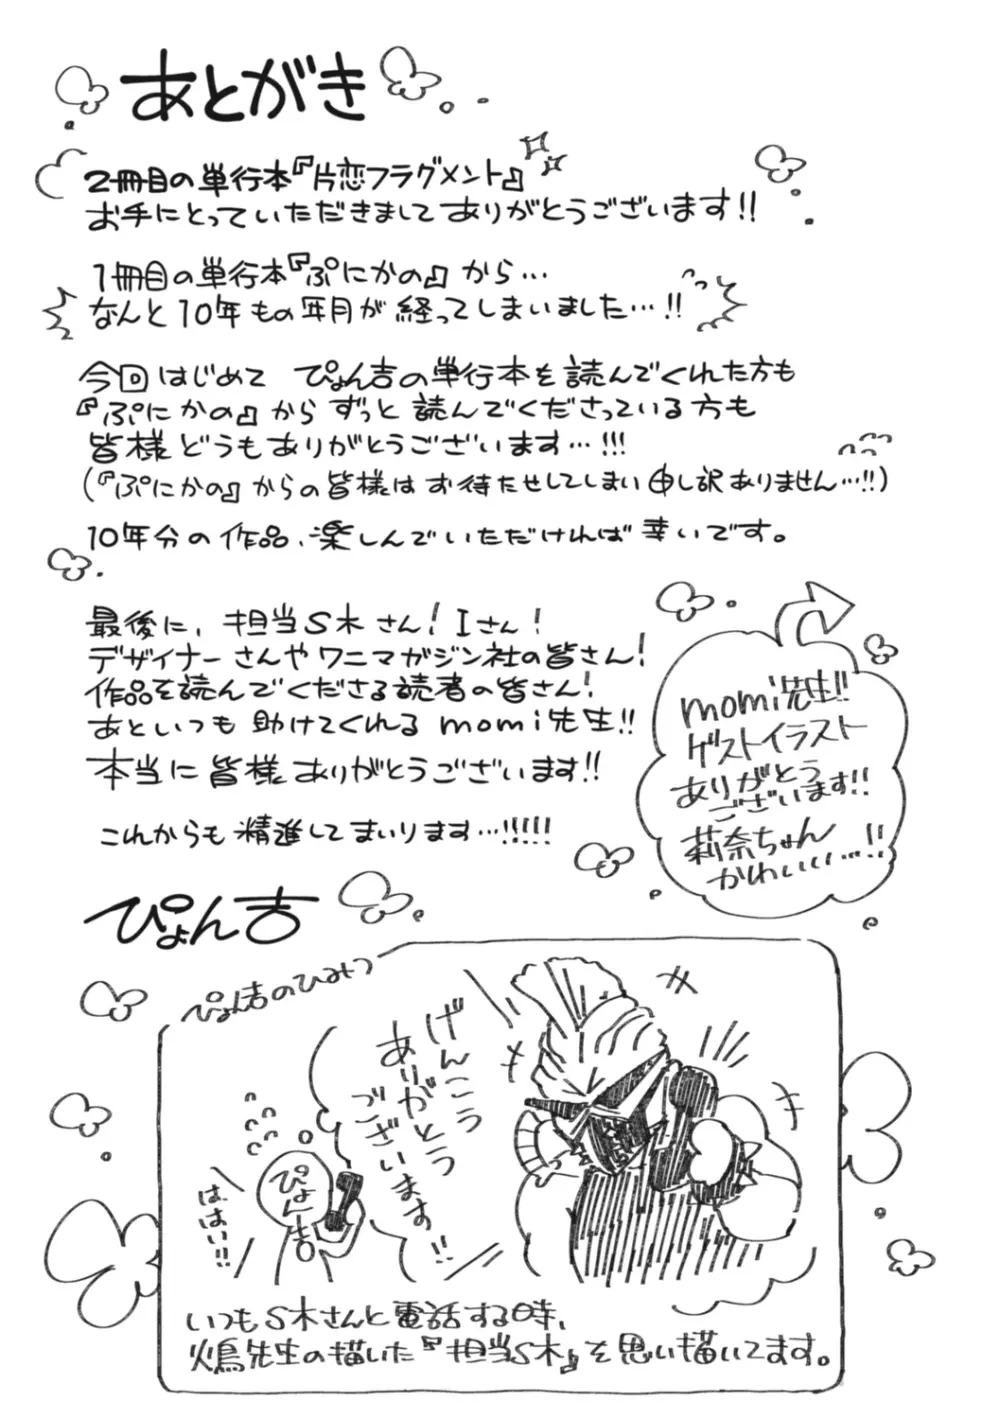 あとがき
2冊目の単行本『片恋フラグメント』
お手にとっていただきましてありがとうございます!!
1冊目の単行本『ぷにかの』から…
なんと10年もの年月が経ってしまいました…!!
今回はじめて ぴょん吉の単行本を読んでくれた方も
『ぷにかの』からずっと読んでくださっている方も
皆様どうもありがとうございます…!!!
(『ぷにかの』からの皆様はお待たせしてしまい申し訳ありません…!!)
10年分の作品、楽しんでいただければ幸いです。
最後に、担当S木さん!Iさん!
デザイナーさんやワニマガジン社の皆さん!
作品を読んでくださる読者の皆さん!
あといつも助けてくれるmomi先生!!
本当に皆様ありがとうございます!!
これからも精進してまいります…!!!!!
ぴょん吉
momi先生!!
ゲストイラスト
ありがとう
ございます!!
莉奈ちゃん
かわいい…!!
ぴょん吉のひみつ
げんこう
ありがとう
ございます!!
ぴょん吉
は、はい!!
いつもS木さんと電話する時、
火鳥先生の描いた『担当S木』を思い描いてます。